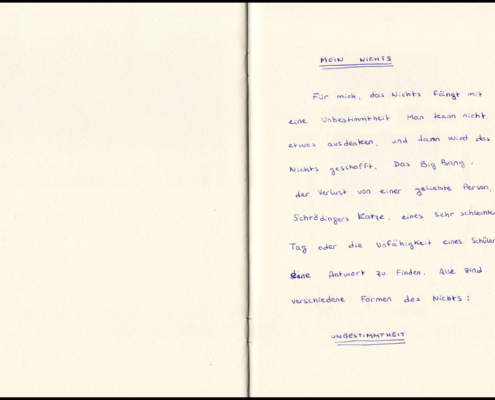 MEIN NICHTS
Für mich, das Nichts fängt mit
eine Unbestimmtheit Man kann nicht
etwas ausdenken, und dann wird das
Nichts geschafft. Das Big Bang,
der Verlust von einer geliebte Person,
Schrödingers Katze, eines sehr schlechter
Tag oder die Unfähigkeit eines Schülers
eine Antwort zu finden. Alle sind
verschiedene Formen des Nichts:
UNBESTIMMTHEIT